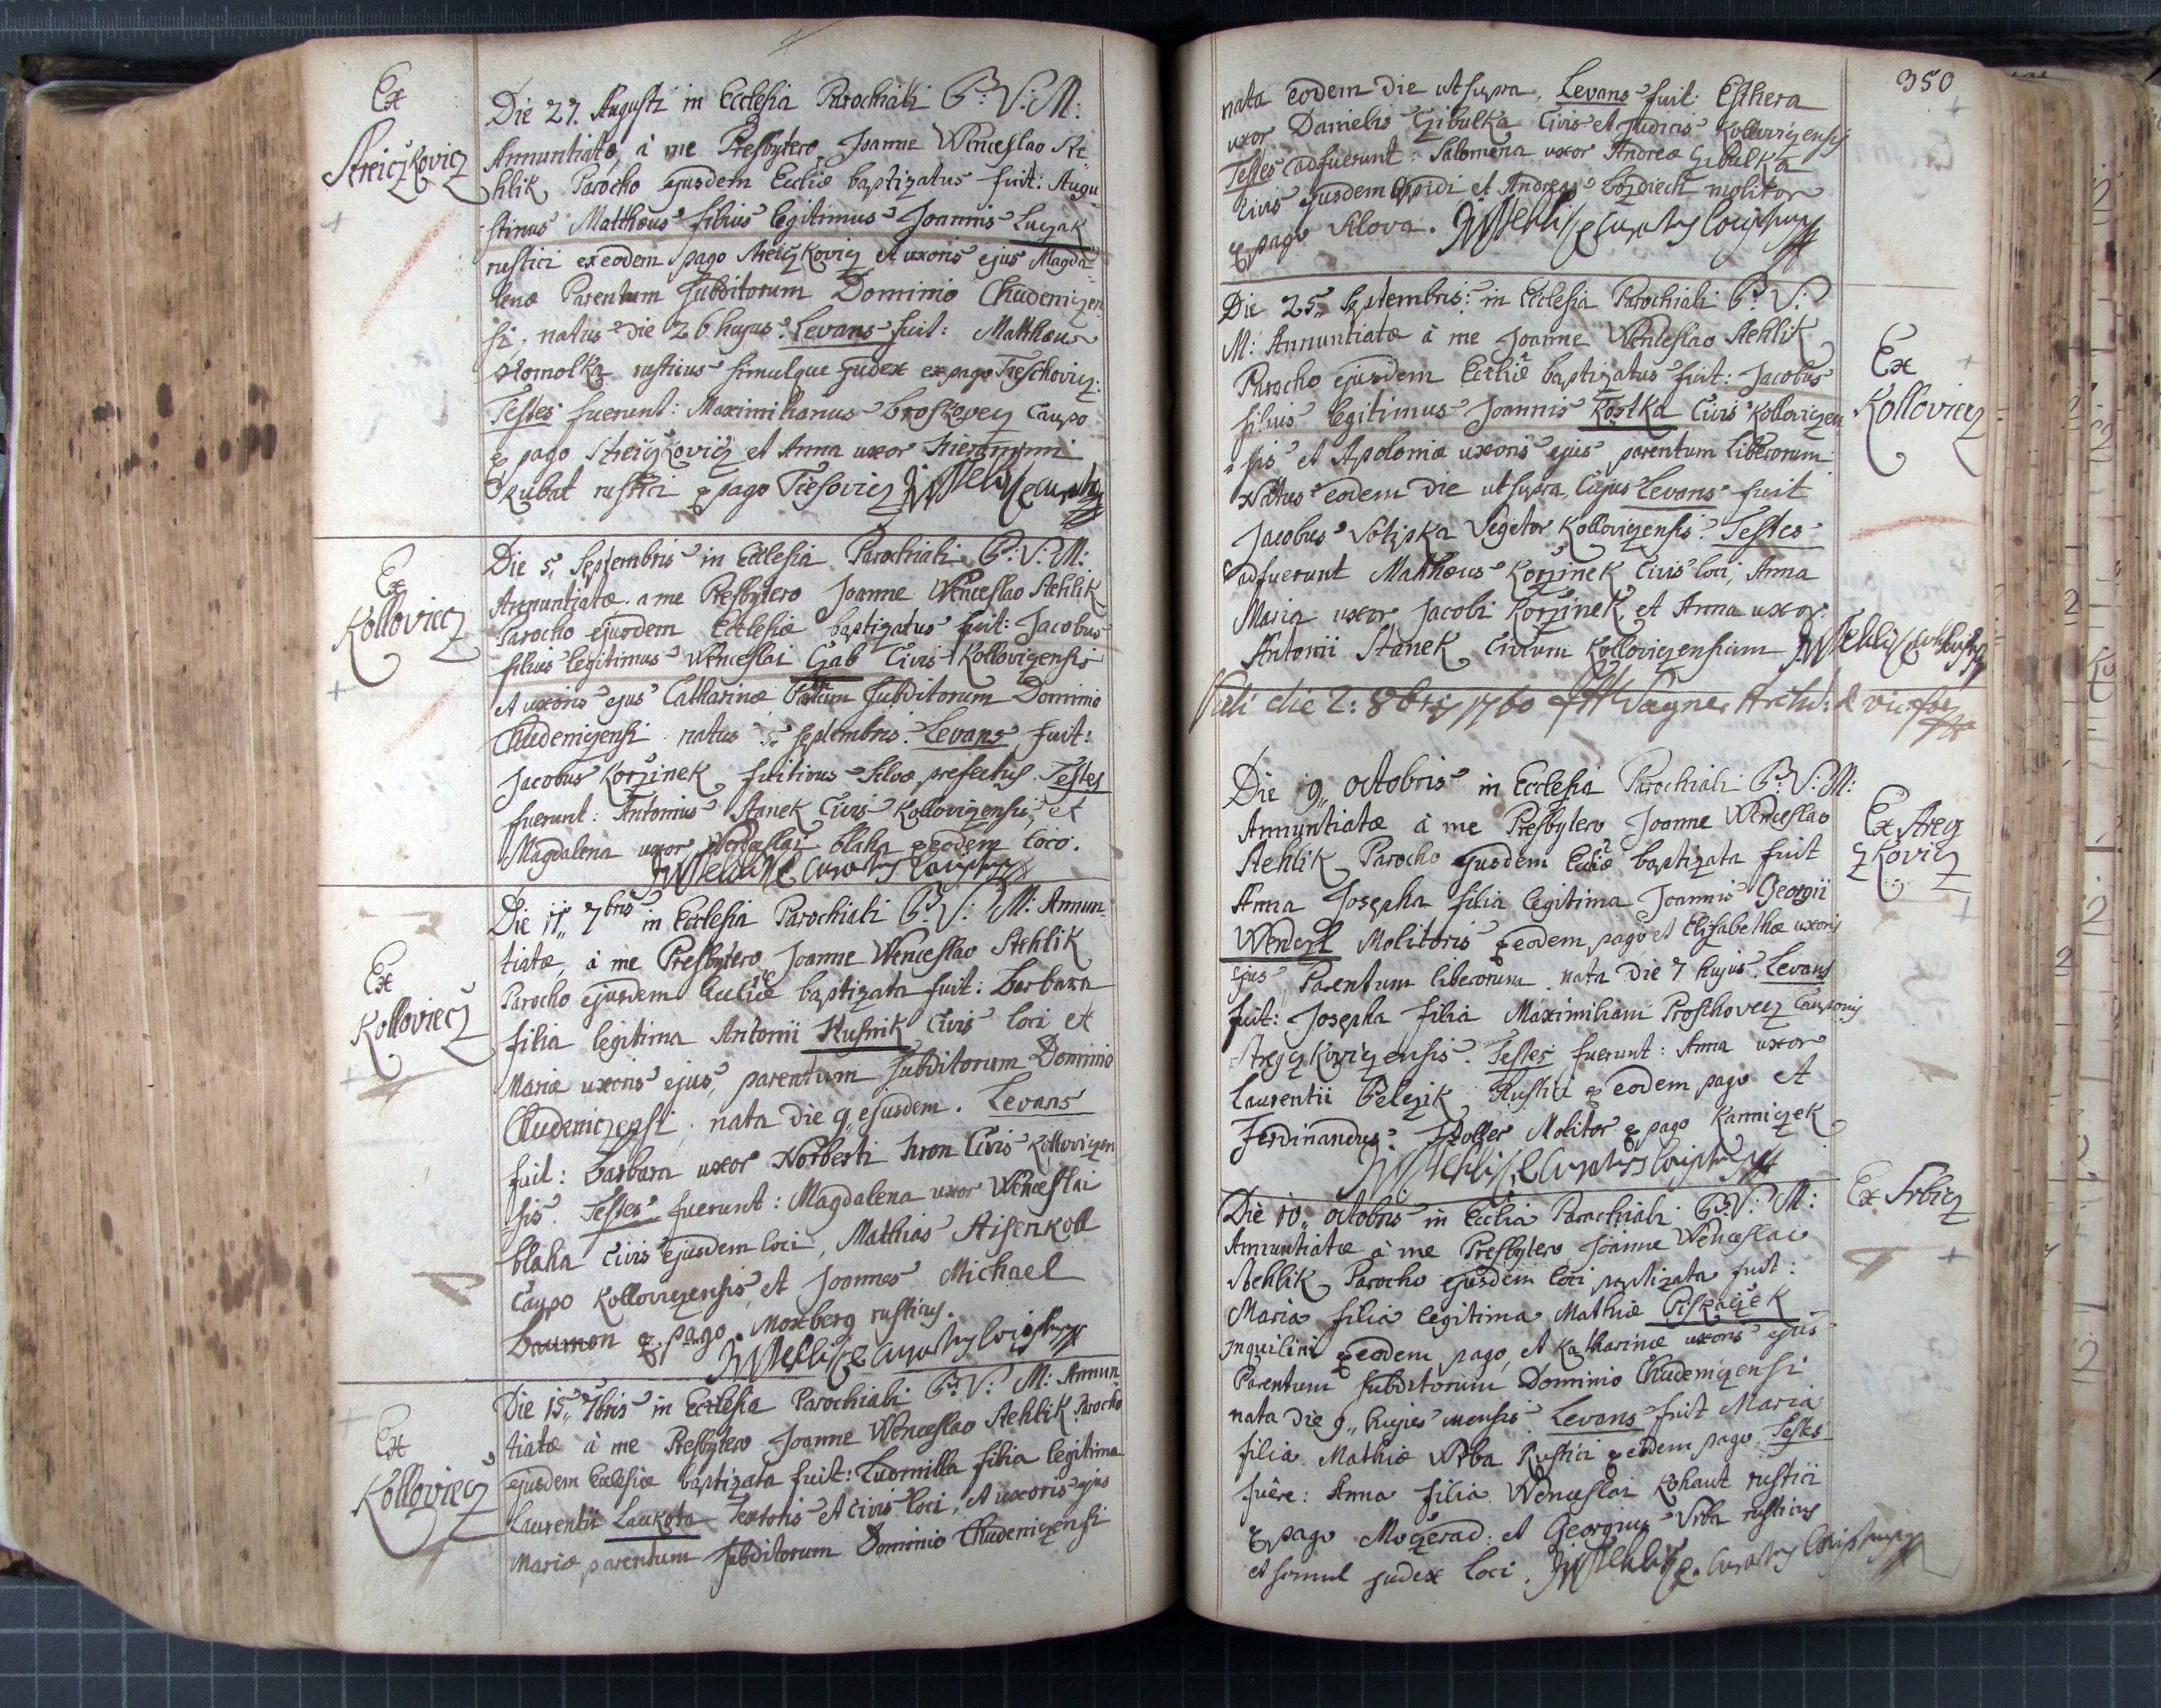 Ex
Streiczkovicz
Die 27. Augusti in Ecclesia Parochiali B: V: M:
Annuntiatæ, à me Presbytero Joanne Wenceslao Ste-
hlik Parocho ejusdem Eccliæ baptizatus fuit: Augu
stinus Matthæus filius legitimus Joannis Luczak
rustici ex eodem pago Streiczkovicz et uxoris ejus Magda
lenæ Parentum Subditorum Dominio Chudeniczen
si, natus die 26 hujus. Levans fuit: Matthæus
Homolka rusticus simulque Judex ex pago Trzeschovicz:
Testes fuerunt: Maximilianus Broskovecz Caupo
e pago Streiczkovicz et Anna uxor Hieronymi
Kubat rustici e pago Tresovicz JWStehlik
Ex
Kolloviecz
Die 5. Septembris in Ecclesia Parochiali B: V: M:
Annuntiatæ a me Presbytero Joanne Wenceslao Stehlik
Parocho ejusdem Ecclesiæ baptizatus fuit: Jacobus
filius legitimus Wenceslai Gab Civis Kollovizensis
et uxoris ejus Catharinæ Subditorum Dominio
Chudenizensi natus 5. Septembris. Levans fuit:
Jacobus Korzinek Silvæ præfectus. Testes
fuerunt: Antonius Stanek Civis Kollovizensis, et
Magdalena uxor Wenceslai blaha ex eodem loco.
JWStehlik Curatus
Ex
Kolloviecz
Die 11. 7bris in Ecclesia Parochiali B: V: M: Annun-
tiatæ, à me Presbytero Joanne Wenceslao Stehlik
Parocho ejusdem Eccliæ baptizata fuit: Barbara
filia legitima Antonii Husnik Civis loci et
Mariæ uxoris ejus, parentum Subditorum Dominio
Chudeniczensi, nata die 9 ejusdem. Levans
fuit: Barbara uxor Norberti Hron Civis Kollovizen
sis. Testes fuerunt: Magdalena uxor Wenceslai
blaha Civis ejusdem loci, Mathias Aisenkoll
Caupo Kollovizensis, et Joannes Michael
Baumon e pago Moxberg rusticus.
JWStehlik Curatus
Ex
Kolloviecz
Die 15. 7bris in Ecclesia Parochiali B: V: M: Annun
tiatæ à me Presbytero Joanne Wenceslao Stehlik Parocho
ejusdem Ecclesiæ baptizata fuit: Ludmilla filia legitima
Laurentii Laukota Textoris et Civis loci, et uxoris ejus
Mariæ parentum Subditorum Dominio Chudenizensi
350
nata eodem die ut supra. Levans fuit: Esthera
uxor Danielis Czibulka Civis et Judicis Kollovizensis
Testes adfuerunt: Salomena uxor Andreæ Czibulka
Civis ejusdem Oppidi et Andreas bozdiech molitor
e pago Silova. JWStehlik Curatus
Ex
Kolloviecz
Die 25. Septembris: in Ecclesia Parochiali B: V:
M: Annuntiatæ à me Joanne Wenceslao Stehlik
Parocho ejusdem Eccliæ baptizatus fuit: Jacobus
filius legitimus Joannis Kostka Civis Kollovizen
sis et Apoloniæ uxoris ejus parentum Liberorum
Natus eodem die ut supra, Cujus Levans fuit
Jacobus Votipka Vegetor Kollovizensis. Testes
adfuerunt Matthæus Korzinek Civis loci, Anna
Maria uxor Jacobi Korzinek et Anna uxor
Antonii Stanek Civium Kollovizensium JWStehlik
Vidi die 2: 8bris 1760 Wagner Archid: & vic: for
Ex Strey
czkovicz
Die 9. Octobris in Ecclesia Parochiali B: V: M:
Annuntiatæ à me Presbytero Joanne Wenceslao
Stehlik Parocho ejusdem Eccliæ baptizata fuit
Anna Josepha filia legitima Joannis Georgii
Wenczl Molitoris ex eodem pago et Elisabethæ uxoris
ejus, Parentum liberorum. nata Die 7 hujus. Levans
fuit: Josepha filia Maximiliani Proschovecz Cauponis
Strejczkovizensis. Testes fuerunt: Anna uxor
Laurentii Belezik Rustici ex eodem pago et
Ferdinandus Holler Molitor e pago Kamiczek
JWStehlik Curatus
Ex Srbicz
Die 10. Octobris in Ecclia Parochiali B: V: M:
Annuntiatæ à me Presbytero Joanne Wenceslao
Stehlik Parocho ejusdem loci baptizata fuit:
Maria filia legitima Mathiæ Piskaczek
Inquilini ex eodem pago, et Katharinæ uxoris ejus
Parentum Subditorum Dominio Chudenizensi
nata Die 9. hujus mensis Levans fuit Maria
filia Mathiæ Wrba Rustici ex eodem pago. Testes
fuere: Anna filia Wenceslai Kohaut rustici
e pago Moczerad: et Georgius Vrba rusticus
et simul Judex loci. JWStehlik Curatus